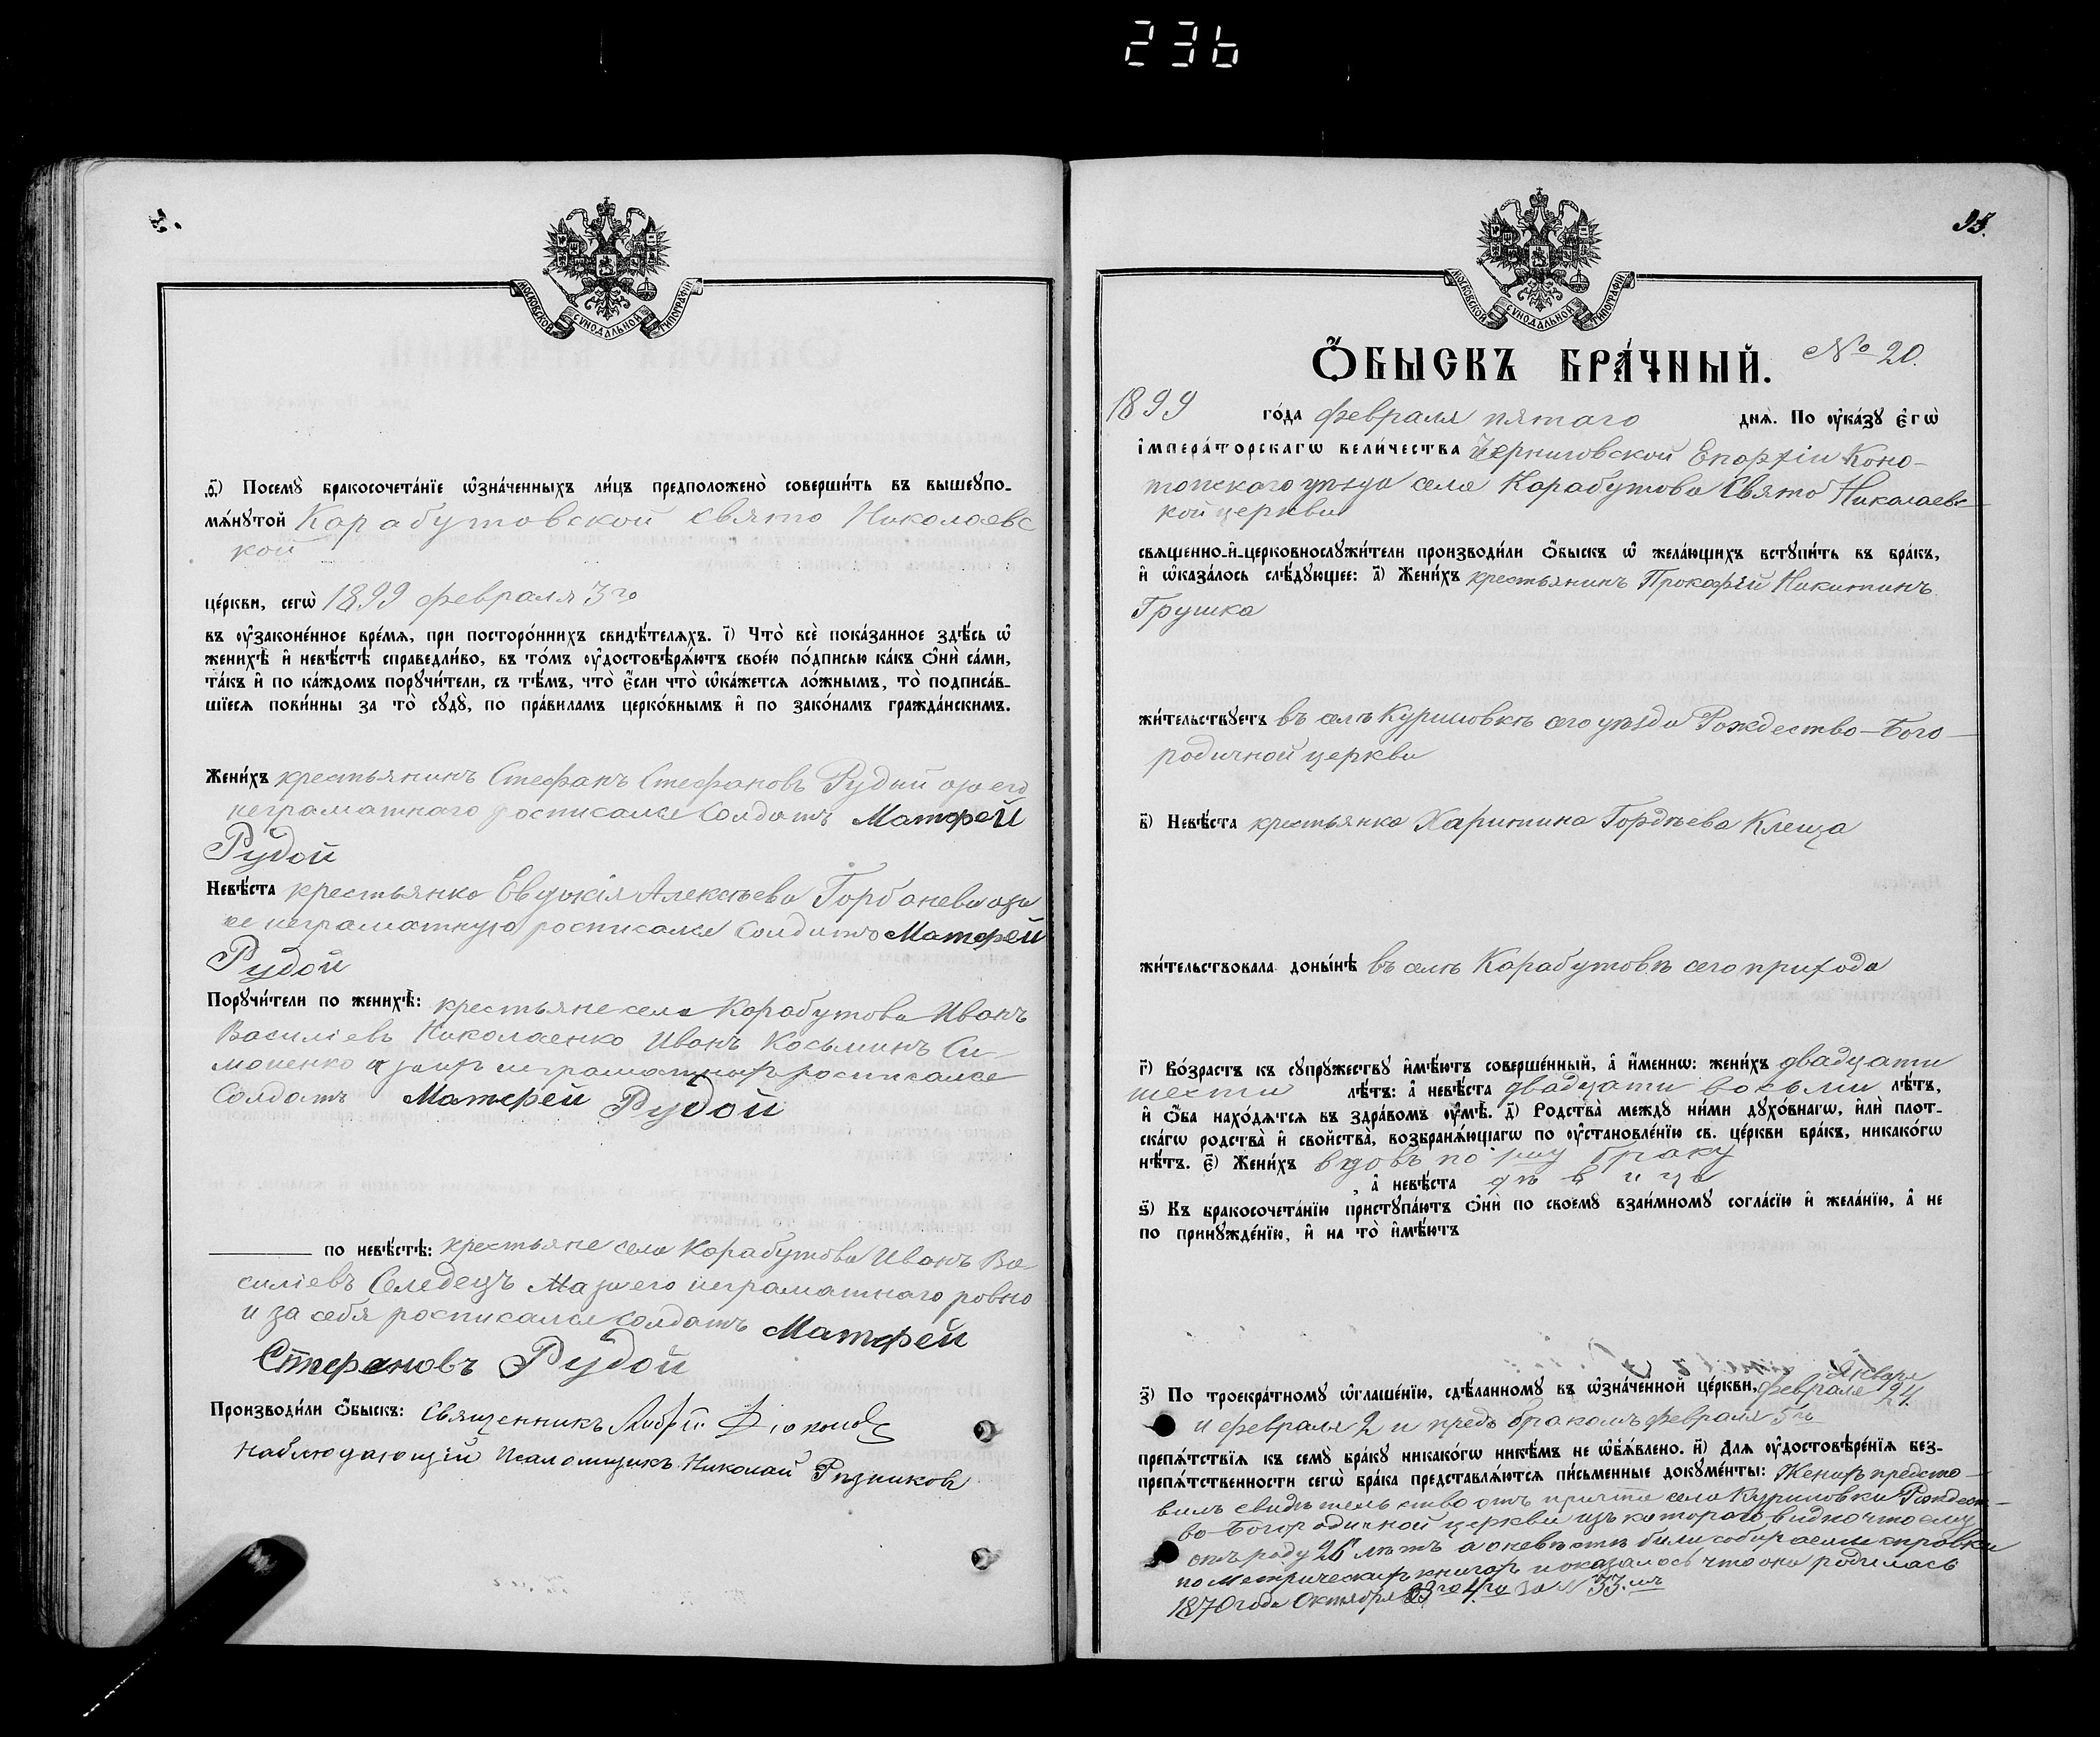 236
МОСКОВСКОЙ СѴНОДАЛЬНОЙ ТИПОГРАФІИ
ѳ҃) Посемꙋ̀ бракосочета́нїе ѡ҆зна́ченныхъ ли́цъ предположено̀ соверши́ть въ вышеꙋпо-
мѧ́нꙋтой Карабутовской Свято Николаевс
кой
це́ркви, сегѡ̀ 1899 февраля 3го
въ ᲂу҆зако́ненное вре́мѧ, при посторо́ннихъ свидѣ́телѧхъ. і҃) Что̀ всѐ пока́занное здѣ́сь ѡ҆
женихѣ̀ и҆ невѣ́стѣ справедли́во, въ то́мъ ᲂу҆достовѣрѧ́ютъ свое́ю по́дписью ка́къ ѻ҆нѝ са́ми,
та́къ и҆ по ка́ждомъ порꙋчи́тели, съ тѣ́мъ, что̀ є҆́сли что̀ ѡ҆ка́жетсѧ ло́жнымъ, то̀ подписа́в-
шїесѧ пови́нны за то̀ сꙋдꙋ̀, по пра́виламъ церко́внымъ и҆ по зако́намъ гражда́нскимъ.
Жени́хъ крестьянинъ Стефанъ Стефановъ Рудый а за его
неграматнаго росписался Солдатъ Матфей
Рудой
Невѣ́ста крестьянка Евдокія Алексѣева Горбанева а за
ее неграматную росписался Солдатъ Матфей
Рудой
Порꙋчи́тели по женихѣ̀: крестьяне села Карабутова Иванъ
Василіевъ Николаенко Иванъ Косьминъ Си-
моненко а за ихъ неграматныхъ росписался
Солдатъ Матфей Рудой
по невѣ́стѣ: крестьяне села Карабутова Иванъ Ва-
силіевъ Селедецъ а за его неграматнаго ровно
и за себя росписался Солдатъ Матфей
Стефановъ Рудой
Производи́ли ѻ҆́быскъ: Священникъ Андрей
Наблюдающій Псаломщикъ Николай Рѣзниковъ
93.
МОСКОВСКОЙ СѴНОДАЛЬНОЙ ТИПОГРАФІИ
Ѻ҆́БЫСКЪ БРА́ЧНЫЙ. № 20.
1899 го́да февраля пятаго днѧ̀. По ᲂу҆ка́зꙋ є҆гѡ̀
і҆мпера́торскагѡ вели́чества Черниговской Епархіи Коно-
топскаго уѣзда села Карабутова Свято Николаевс-
кой церкви
свѧще́нно-и҆-церковнослꙋжи́тели производи́ли ѻ҆́быскъ ѡ҆ жела́ющихъ встꙋпи́ть въ бра́къ,
и҆ ѡ҆каза́лось слѣ́дꙋющее: а҃) Жени́хъ крестьянинъ Прокофій Никитинъ
Грушка
жи́тельствꙋетъ въ селѣ Куриловкѣ сего уѣзда Рождество-Бого-
родичной церкви
в҃) Невѣ́ста крестьянка Харитина Гордѣева Клеща
жи́тельствовала доны́нѣ въ селѣ Карабутовѣ сего прихода
г҃) Во́зрастъ къ сꙋпрꙋ́жествꙋ и҆мѣ́ютъ соверше́нный, а҆ и҆́меннѡ: жени́хъ двадцати
шести лѣ́тъ: а҆ невѣ́ста двадцати восьми лѣ́тъ,
и҆ ѻ҆́ба нахо́дѧтсѧ въ здра́вомъ ᲂу҆мѣ̀. д҃) Родства̀ междꙋ̀ ни́ми дꙋхо́внагѡ, и҆лѝ плот-
ска́гѡ родства̀ и҆ свойства̀, возбранѧ́ющагѡ по ᲂу҆становле́нїю св. це́ркви бра́къ, никако́гѡ
нѣ́тъ. є҃) Жени́хъ вдовъ по 1му браку
, а҆ невѣ́ста дѣвица
ѕ҃) Къ бракосочета́нїю пристꙋпа́ютъ ѻ҆нѝ по своемꙋ̀ взаи́мномꙋ согла́сїю и҆ жела́нїю, а҆ не
по принꙋжде́нїю, и҆ на то̀ и҆мѣ́ютъ
Января
з҃) По троекра́тномꙋ ѡ҆глаше́нїю, сдѣ́ланномꙋ въ ѡ҆зна́ченной це́ркви, февраля 24.
и февраля 2 и предъ бракомъ февраля 5го
препѧ́тствїѧ къ семꙋ̀ бра́кꙋ никако́гѡ никѣ́мъ не ѡ҆б̾ѧ́влено. и҃) Длѧ ᲂу҆достовѣре́нїѧ без-
препѧ́тственности сегѡ̀ бра́ка представлѧ́ютсѧ пи́сьменные докꙋме́нты: Женихъ предста-
вилъ свидѣтельство отъ причта села Куриловки Рождест-
во-Богородичной церкви изъ котораго видно что ему
отъ роду 26 лѣтъ а о невѣстѣ были собираемы справки
по Метрическихъ книгахъ и оказалось что она родилась
1870 года Октября 4го за N 33.мъ